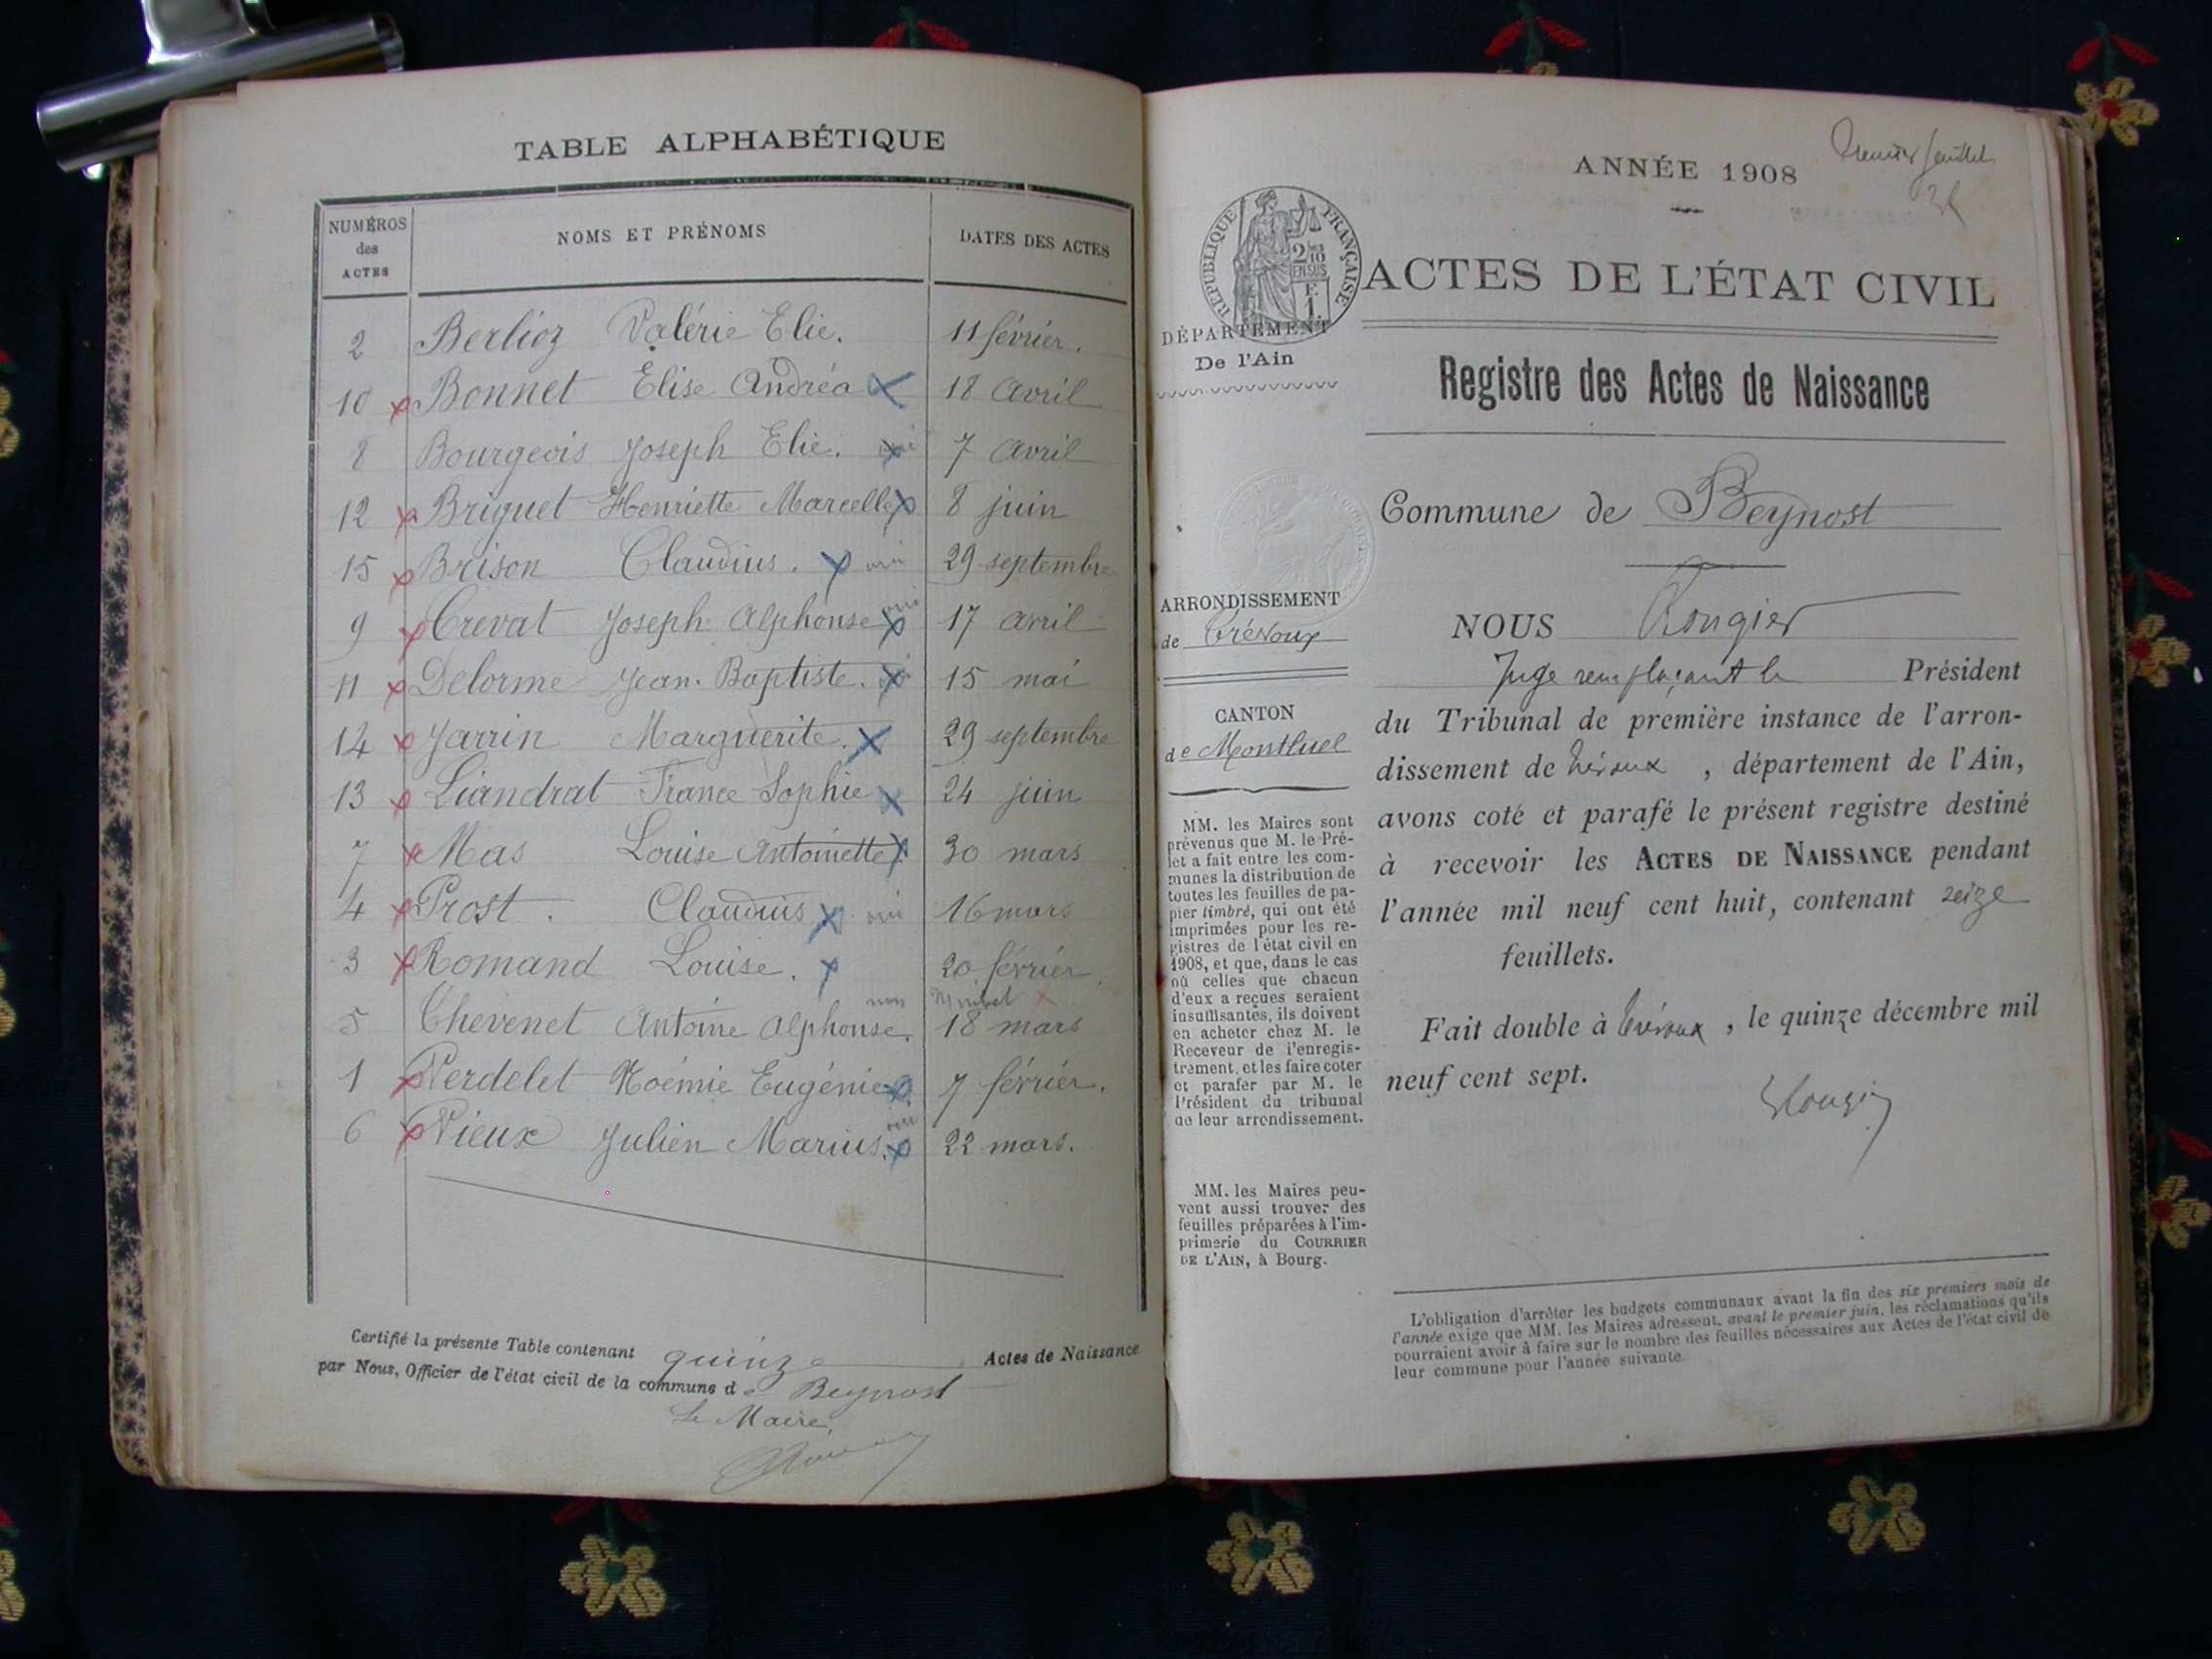 TABLE ALPHABÉTIQUE
NUMÉROS des ACTES NOMS ET PRÉNOMS DATES DES ACTES
2 Berlioz Valérie Elie. 11 février.
10 x Bonnet Elise Andréa x 18 avril
8 Bourgeois Joseph Elie. x oui 7 avril
12 x Briguet Henriette Marcelle x 8 juin
15 x Brison Claudius. x oui 29 septembre
9 x Crevat Joseph Alphonse x oui 17 avril
11 x Delorme Jean-Baptiste. x 15 mai
14 x Jarrin Marguerite. x 29 septembre
13 x Liandrat France Sophie x 24 juin
7 x Mas Louise Antoinette x 30 mars
4 x Prost. Claudius x oui 16 mars
3 x Romand Louise. x 20 février.
5 Thevenet Antoine Alphonse. non 18 mars
1 x Verdelet Noémie Eugénie x 7 février.
6 x Vieux Julien Marius. x oui 22 mars.
Certifié la présente Table contenant quinze Actes de Naissance
par Nous, Officier de l'état civil de la commune de Beynost
Le Maire,
Premier feuillet
ANNÉE 1908
RÉPUBLIQUE FRANÇAISE
2/10 EN SUS
F. 1.
ACTES DE L'ÉTAT CIVIL
DÉPARTEMENT
De l'Ain
Registre des Actes de Naissance
Commune de Beynost
ARRONDISSEMENT
de Trévoux
CANTON
de Montluel
MM. les Maires sont
prévenus que M. le Pré-
fet a fait entre les com-
munes la distribution de
toutes les feuilles de pa-
pier timbré, qui ont été
imprimées pour les re-
gistres de l'état civil en
1908, et que, dans le cas
où celles que chacun
d'eux a reçues seraient
insuffisantes, ils doivent
en acheter chez M. le
Receveur de l'enregis-
trement, et les faire coter
et parafer par M. le
Président du tribunal
de leur arrondissement.
MM. les Maires peu-
vent aussi trouver des
feuilles préparées à l'im-
primerie du COURRIER
DE L'AIN, à Bourg.
NOUS Rougier
Juge remplaçant le Président
du Tribunal de première instance de l'arron-
dissement de Trévoux, département de l'Ain,
avons coté et parafé le présent registre destiné
à recevoir les ACTES DE NAISSANCE pendant
l'année mil neuf cent huit, contenant seize
feuillets.
Fait double à Trévoux, le quinze décembre mil
neuf cent sept.
Rougier
L'obligation d'arrêter les budgets communaux avant la fin des six premiers mois de
l'année exige que MM. les Maires adressent, avant le premier juin, les réclamations qu'ils
pourraient avoir à faire sur le nombre des feuilles nécessaires aux Actes de l'état civil de
leur commune pour l'année suivante.